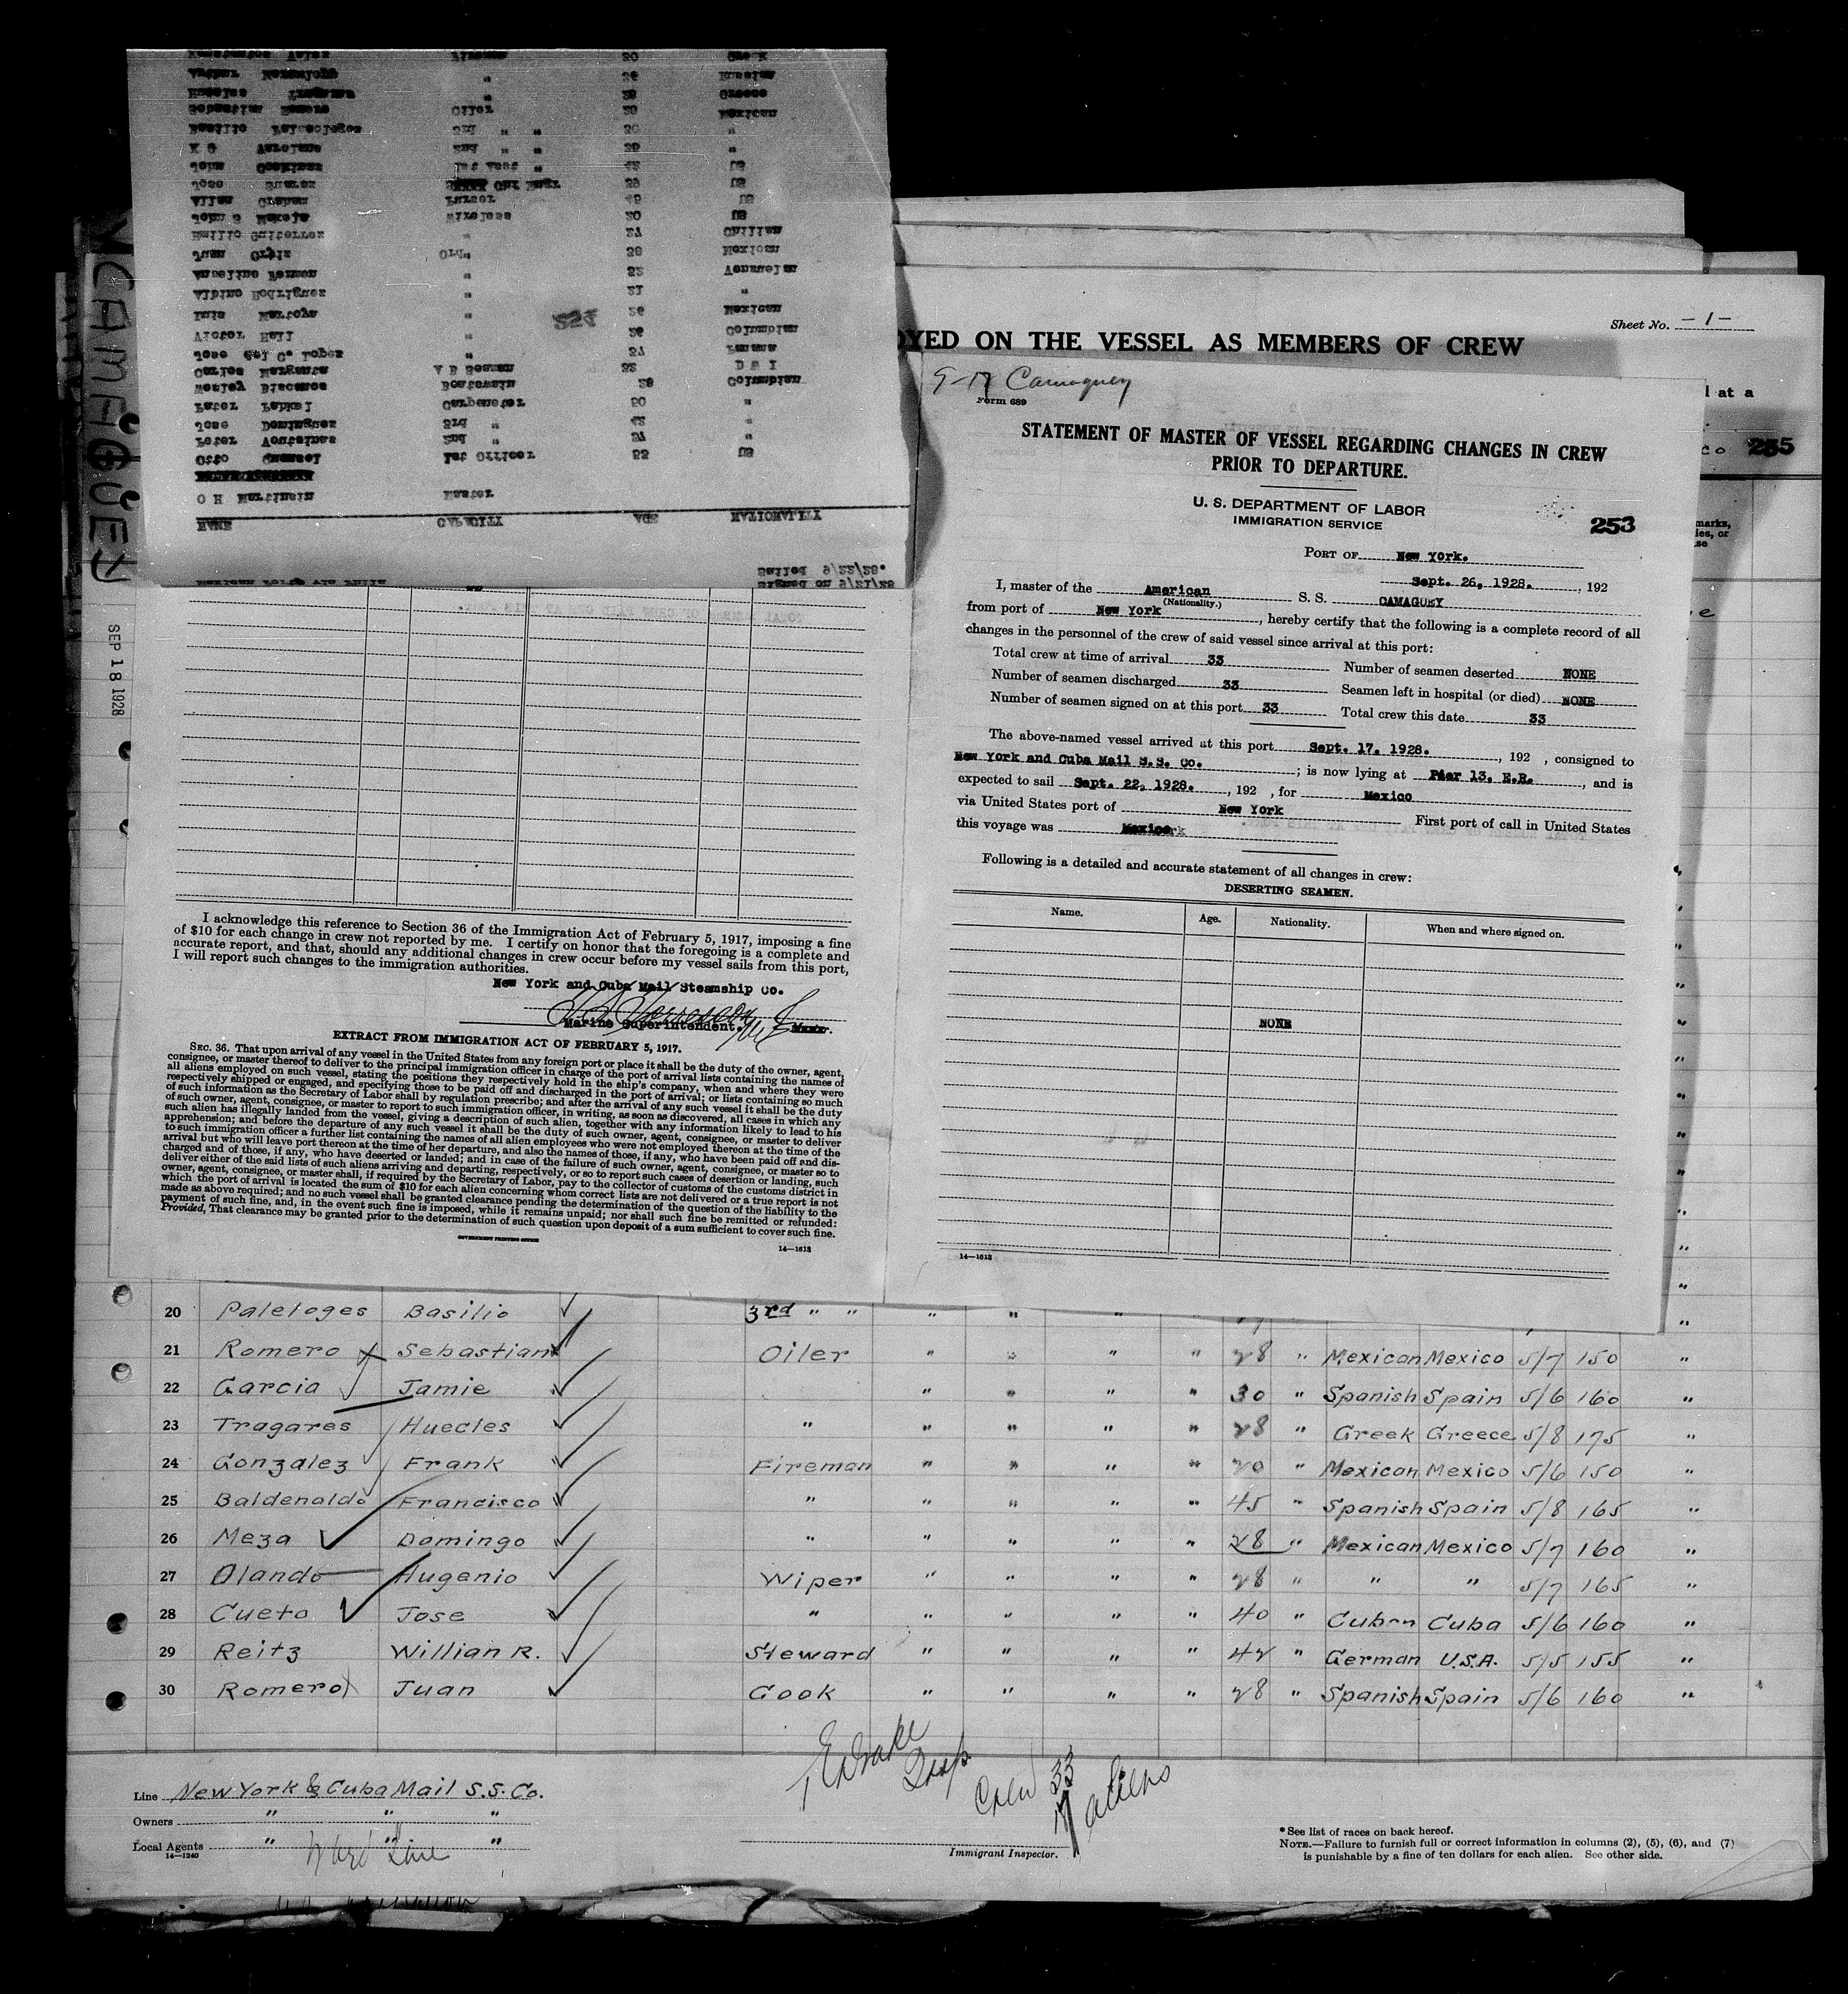 CAMAGUEY
SEP 18 1928
Signed on 9/21/28
Sailed 9/22/28.
NAME CAPACITY AGE NATIONALITY
O H Martinsin Master
Otto 1st Officer 53 US
Peter Voutsinas 2nd " 37 "
Jose Dominguez 3rd " 42 "
Peter Carpenter 50 "
Wesley Biscanos Boatswain 28 Columbian
Carlos Marganta A B Seaman 32 D W I
Jose del C. Lopez " 37 Panama
Victor Hall " 26 Columbian
Luis Martoya " 26 Mexican
254
Albino Rodriguez " 21 "
Anselino " 32
Juan Ortiz Ord" 38 Mexican
Emilio Guiterrez " 27 Chilian
John S Wireless 20 US
Allen Graham Purser 45 US
Jose Suarez Chf Engr 39 US
John 1st Asst " 42 US
K G 2nd " " 35 "
Basilio Paleologos 3rd " " 30 "
Sebastian Romero Oiler 28 Mexican
" 28 Greece
Arthur " 36 Russian
Fireman 30 Greek
I acknowledge this reference to Section 36 of the Immigration Act of February 5, 1917, imposing a fine
of $10 for each change in crew not reported by me. I certify on honor that the foregoing is a complete and
accurate report, and that, should any additional changes in crew occur before my vessel sails from this port,
I will report such changes to the immigration authorities.
New York and Cuba Mail Steamship Co.
Marine Superintendent.
EXTRACT FROM IMMIGRATION ACT OF FEBRUARY 5, 1917.
SEC. 36. That upon arrival of any vessel in the United States from any foreign port or place it shall be the duty of the owner, agent,
consignee, or master thereof to deliver to the principal immigration officer in charge of the port of arrival lists containing the names of
all aliens employed on such vessel, stating the positions they respectively hold in the ship's company, when and where they were
respectively shipped or engaged, and specifying those to be paid off and discharged in the port of arrival; or lists containing so much
of such information as the Secretary of Labor shall by regulation prescribe; and after the arrival of any such vessel it shall be the duty
of such owner, agent, consignee, or master to report to such immigration officer, in writing, as soon as discovered, all cases in which any
such alien has illegally landed from the vessel, giving a description of such alien, together with any information likely to lead to his
apprehension; and before the departure of any such vessel it shall be the duty of such owner, agent, consignee, or master to deliver
to such immigration officer a further list containing the names of all alien employees who were not employed thereon at the time of the
arrival but who will leave port thereon at the time of her departure, and also the names of those, if any, who have been paid off and dis-
charged and of those, if any, who have deserted or landed; and in case of the failure of such owner, agent, consignee, or master so to
deliver either of the said lists of such aliens arriving and departing, respectively, or so to report such cases of desertion or landing, such
owner, agent, consignee, or master shall, if required by the Secretary of Labor, pay to the collector of customs of the customs district in
which the port of arrival is located the sum of $10 for each alien concerning whom correct lists are not delivered or a true report is not
made as above required; and no such vessel shall be granted clearance pending the determination of the question of the liability to the
payment of such fine, and, in the event such fine is imposed, while it remains unpaid; nor shall such fine be remitted or refunded:
Provided, That clearance may be granted prior to the determination of such question upon deposit of a sum sufficient to cover such fine.
GOVERNMENT PRINTING OFFICE
14—1613
Sheet No. -1-
OYED ON THE VESSEL AS MEMBERS OF CREW
at a
co 255
marks,
ies, or
se
9-17 Camaguey
Form 689
STATEMENT OF MASTER OF VESSEL REGARDING CHANGES IN CREW
PRIOR TO DEPARTURE.
U. S. DEPARTMENT OF LABOR
IMMIGRATION SERVICE
253
PORT OF New York.
Sept. 26, 1928. , 192
I, master of the American S. S. CAMAGUEY
(Nationality.)
from port of New York , hereby certify that the following is a complete record of all
changes in the personnel of the crew of said vessel since arrival at this port:
Total crew at time of arrival 33 Number of seamen deserted NONE
Number of seamen discharged 33 Seamen left in hospital (or died) NONE
Number of seamen signed on at this port 33 Total crew this date 33
The above-named vessel arrived at this port Sept. 17. 1928. , 192 , consigned to
New York and Cuba Mail S.S. Co. ; is now lying at Pier 13. E.R. , and is
expected to sail Sept. 22, 1928. , 192 , for Mexico
via United States port of New York First port of call in United States
this voyage was Mexico
Following is a detailed and accurate statement of all changes in crew:
DESERTING SEAMEN.
Name. Age. Nationality. When and where signed on.
NONE
14—1613
20 Paleloges Basilio 3rd " " " " "
21 Romero Sebastian Oiler " " " " 28 " Mexican Mexico 5/7 150 "
22 Garcia Jamie " " " " 30 " Spanish Spain 5/6 160 "
23 Tragares Huecles " " " " " 28 " Greek Greece 5/8 175 "
24 Gonzalez Frank Fireman " " " " 20 " Mexican Mexico 5/6 150 "
25 Baldenaldo Francisco " " " " " 45 " Spanish Spain 5/8 165 "
26 Meza Domingo " " " " " 28 " Mexican Mexico 5/7 160 "
27 Olando Hugenio Wiper " " " " 28 " " " 5/7 165 "
28 Cueto Jose " " " " " 40 " Cuban Cuba 5/6 160 "
29 Reitz Willian R. Steward " " " " 42 " German U.S.A. 5/5 155 "
30 Romero Juan Cook " " " " 28 " Spanish Spain 5/6 160 "
Crew 33
17 aliens
Line New York & Cuba Mail S.S. Co.
Owners " " "
Local Agents " " "
Ward Line
14—1240
Immigrant Inspector.
* See list of races on back hereof.
NOTE.—Failure to furnish full or correct information in columns (2), (5), (6), and (7)
is punishable by a fine of ten dollars for each alien. See other side.